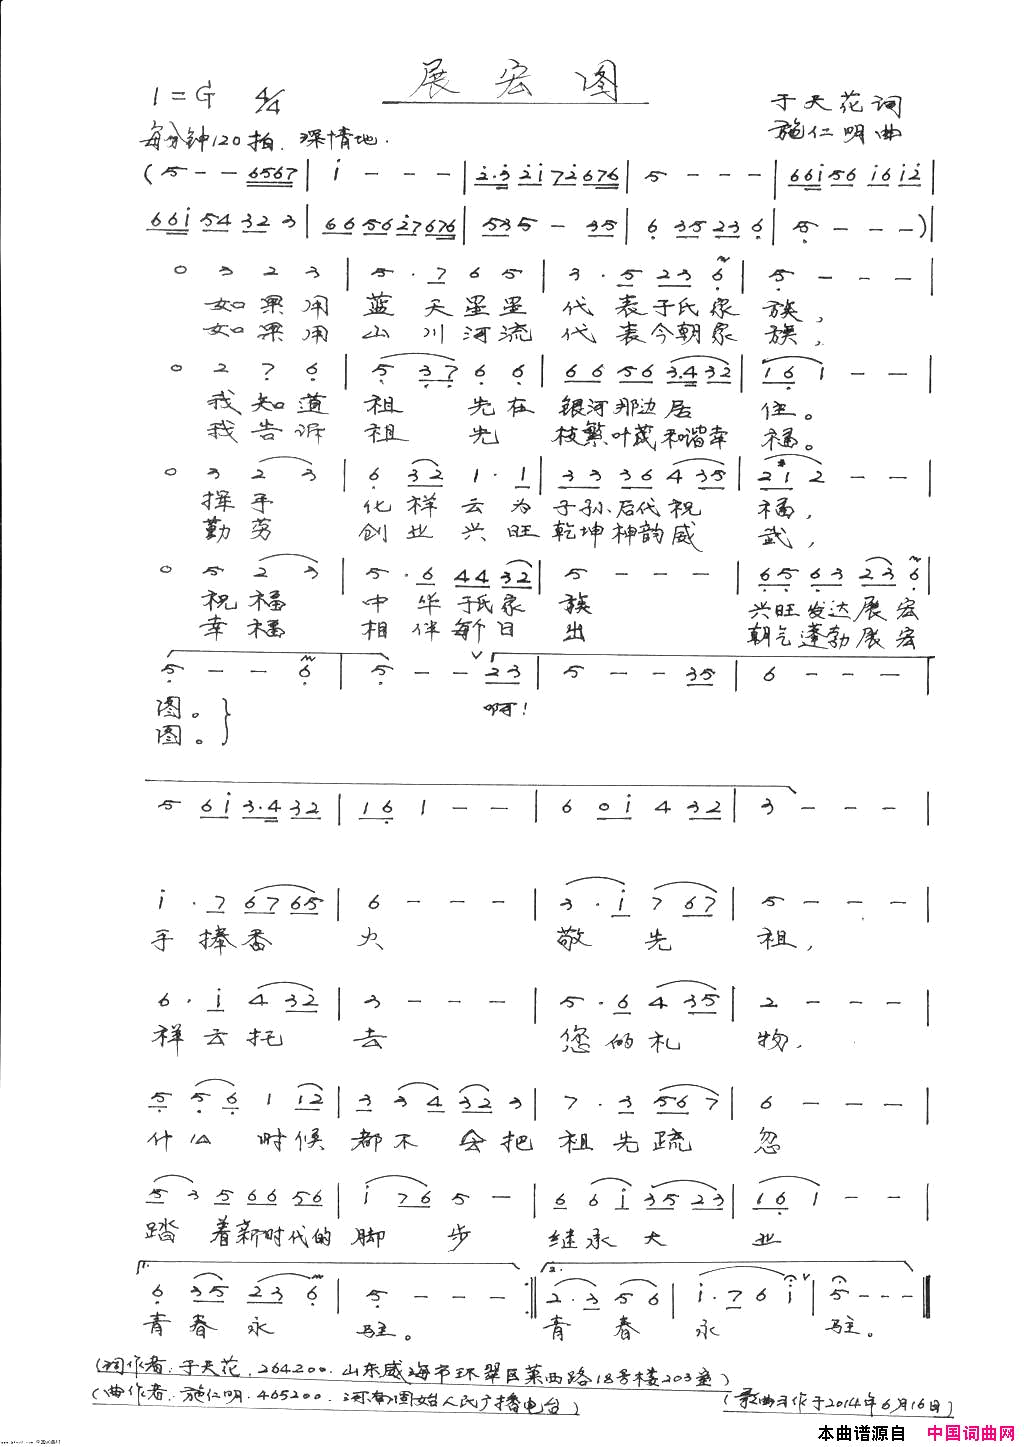 展宏图
1=G 4/4
于天花词
施仁明曲
每分钟120拍.深情地.
(5 - - 6567 | i - - - | 2·3 2i 72676 | 5 - - - | 66i56 i6 i2 |
66i 54 32 3 | 66562767 6 | 535 - 35 | 6 35 23 6 | 5 - - - ) |
0 3 2 3 | 5 · 7 6 5 | 3 · 5 23 6 | 5 - - -
如果用 蓝天星星 代表于氏家 族,
如果用 山川河流 代表今朝家 族,
0 2 7 6 | 5 37 6 6 | 66 56 3·432 | 1 6 1 - -
我知道 祖 先在 银河那边居 住。
我告诉 祖 先 枝繁叶茂和谐幸 福。
0 3 2 3 | 6 32 1 · 1 | 33 36 435 | 2 1 2 - -
挥手 化祥云为子孙后代祝 福,
勤劳 创业兴旺乾坤神韵威 武,
0 5 2 3 | 5 · 6 44 32 | 5 - - - | 65 63 23 6 |
祝福 中华于氏家 族 兴旺发达展宏
幸福 相伴每个日 出 朝气蓬勃展宏
5 - - 6 | 5 - - 23 | 5 - - 35 | 6 - - - |
图。 啊!
图。
5 6i 3·4 32 | 16 1 - - | 6 0i 4 32 | 3 - - - |
i · 7 67 65 | 6 - - - | 3 · i 7 67 | 5 - - - |
手捧香 火 敬先 祖,
6 · i 4 32 | 3 - - - | 5 · 6 4 35 | 2 - - - |
祥云托 去 您的礼 物,
5 5 6 1 12 | 3 3 4 32 3 | 7 · 3 56 7 | 6 - - - |
什么 时候 都不 会把 祖先疏 忽
5 3 5 66 56 | i 76 5 - | 6 6 i 35 23 | 1 6 1 - - |
踏 着新时代的 脚 步 继承大 业
1. 6 35 23 6 | 5 - - - :‖ 2. 2·3 5 6 | i · 7 6 i | 5 - - - ‖
青春永 驻。 青 春 永 驻。
(词作者:于天花,264200.山东威海市环翠区莱西路18号楼203室)
(曲作者:施仁明.465200.河南固始人民广播电台)
(歌曲写作于2014年6月16日)
本曲谱源自 中国词曲网